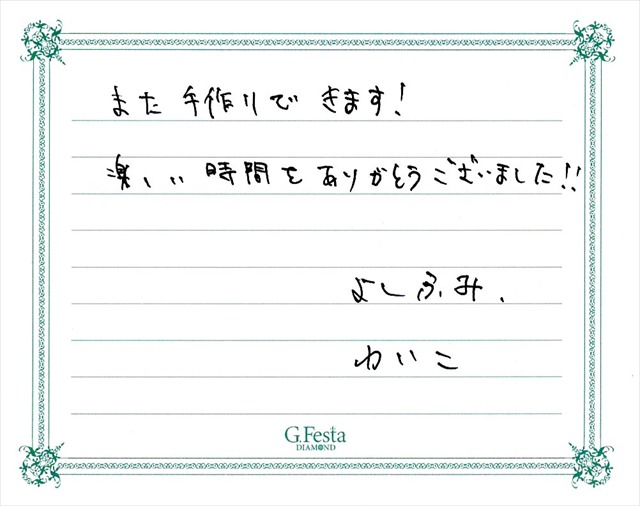 また手作りできます!
楽しい時間をありがとうございました!!
よしふみ、
けいこ
G.Festa
DIAMOND